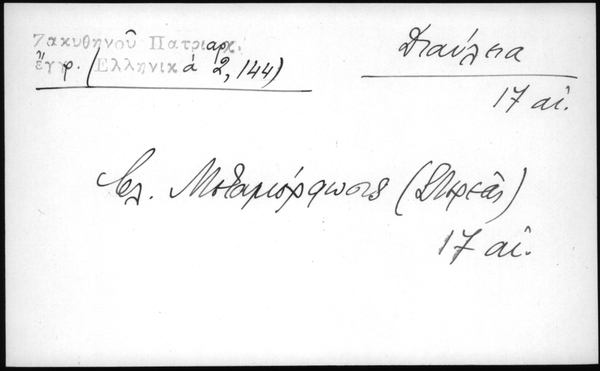 Ζακυθηνοῦ Πατριαρχ.
ἔγγρ. (Ἑλληνικά 2, 144)
Διαύλεια
17 αἰ.
βλ. Μεταμόρφωσις (Στρεζ)
17 αἰ.